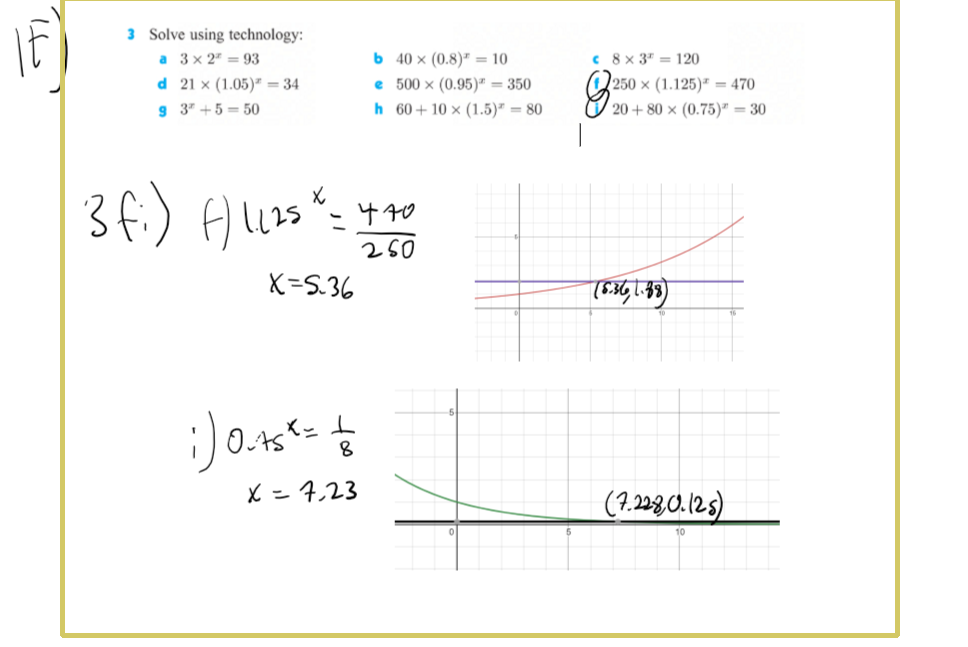 1F)
3 Solve using technology:
a 3 × 2ˣ = 93 b 40 × (0.8)ˣ = 10 c 8 × 3ˣ = 120
d 21 × (1.05)ˣ = 34 e 500 × (0.95)ˣ = 350 f 250 × (1.125)ˣ = 470
g 3ˣ + 5 = 50 h 60 + 10 × (1.5)ˣ = 80 i 20 + 80 × (0.75)ˣ = 30
3 fi) f) 1.125ˣ = 470/250
x = 5.36
5
(5.36, 1.88)
0 5 10 15
i) 0.75ˣ = 1/8
x = 7.23
5
(7.228, 0.125)
0 5 10